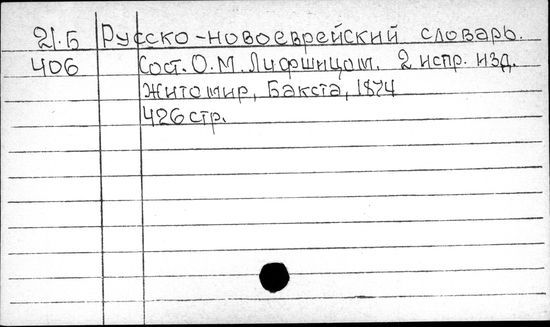 21.Б Русско-новоеврейский словарь.
406 Сост. О.М. Лифшицом. 2 испр. изд.
Житомир, Бакста, 1874
426 стр.